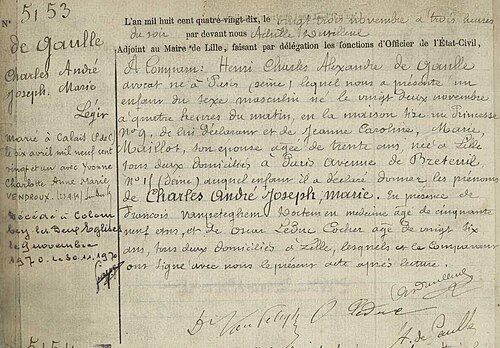 N° 5153
de Gaulle
Charles André
Joseph. Marie
Légit
Marié à Calais P.de C.
le six avril mil neuf cent
vingt et un avec Yvonne
Charlotte Anne Marie
VENDROUX.
Décédé à Colom
bey les Deux Eglises
le 9 novembre
1970. le 30.11.1970
L'an mil huit cent quatre-vingt-dix, le vingt trois novembre à trois heures
du soir par devant nous Achille
Adjoint au Maire de Lille, faisant par délégation les fonctions d'Officier de l'État-Civil,
A Comparu: Henri Charles Alexandre de Gaulle
avocat né à Paris (Seine) lequel nous a présenté un
enfant du sexe masculin né le vingt deux novembre
à quatre heures du matin, en la maison sise rue Princesse
N° 9, de lui déclarant et de Jeanne Caroline, Marie,
Maillot, son épouse âgée de trente ans, née à Lille
tous deux domiciliés à Paris Avenue de Breteuil
N° (Seine) auquel enfant il a déclaré donner les prénoms
de Charles André Joseph, Marie. En présence de
François Vanpeteghem Docteur en médecine âgé de cinquante
neuf ans, et de Oscar Leduc Cocher âgé de vingt six
ans, tous deux domiciliés à Lille, lesquels et le Comparant
ont signé avec nous le présent acte après lecture.
Dr O Leduc
de Gaulle
5154